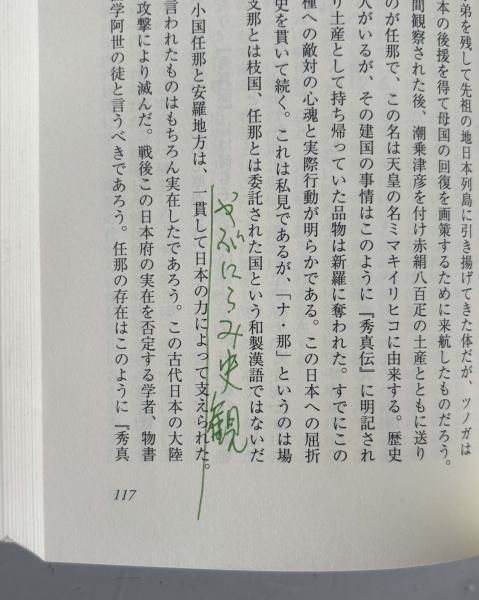 弟を残して先祖の地日本列島に引き揚げてきた体だが、ツノガは
本の後援を得て母国の回復を画策するために来航したものだろう。
間観察された後、潮乗津彦を付け赤絹八百疋の土産とともに送り
のが任那で、この名は天皇の名ミマキイリヒコに由来する。歴史
人がいるが、その建国の事情はこのように『秀真伝』に明記され
り土産として持ち帰っていた品物は新羅に奪われた。すでにこの
種への敵対の心魂と実際行動が明らかである。この日本への屈折
史を貫いて続く。これは私見であるが、「ナ・那」というのは場
支那とは枝国、任那とは委託された国という和製漢語ではないだ
やぶにらみ史観
小国任那と安羅地方は、一貫して日本の力によって支えられた。
言われたものはもちろん実在したであろう。この古代日本の大陸
攻撃により滅んだ。戦後この日本府の実在を否定する学者、物書
学阿世の徒と言うべきであろう。任那の存在はこのように『秀真
117